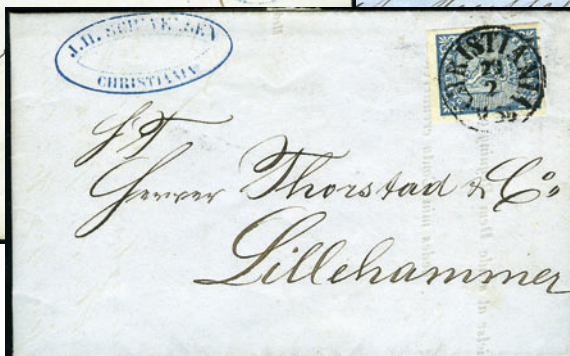 J.H. SCHWENSEN
CHRISTIANIA
CHRISTIANIA
29
2
S.T.
Herrer Thorstad & Co.
Lillehammer